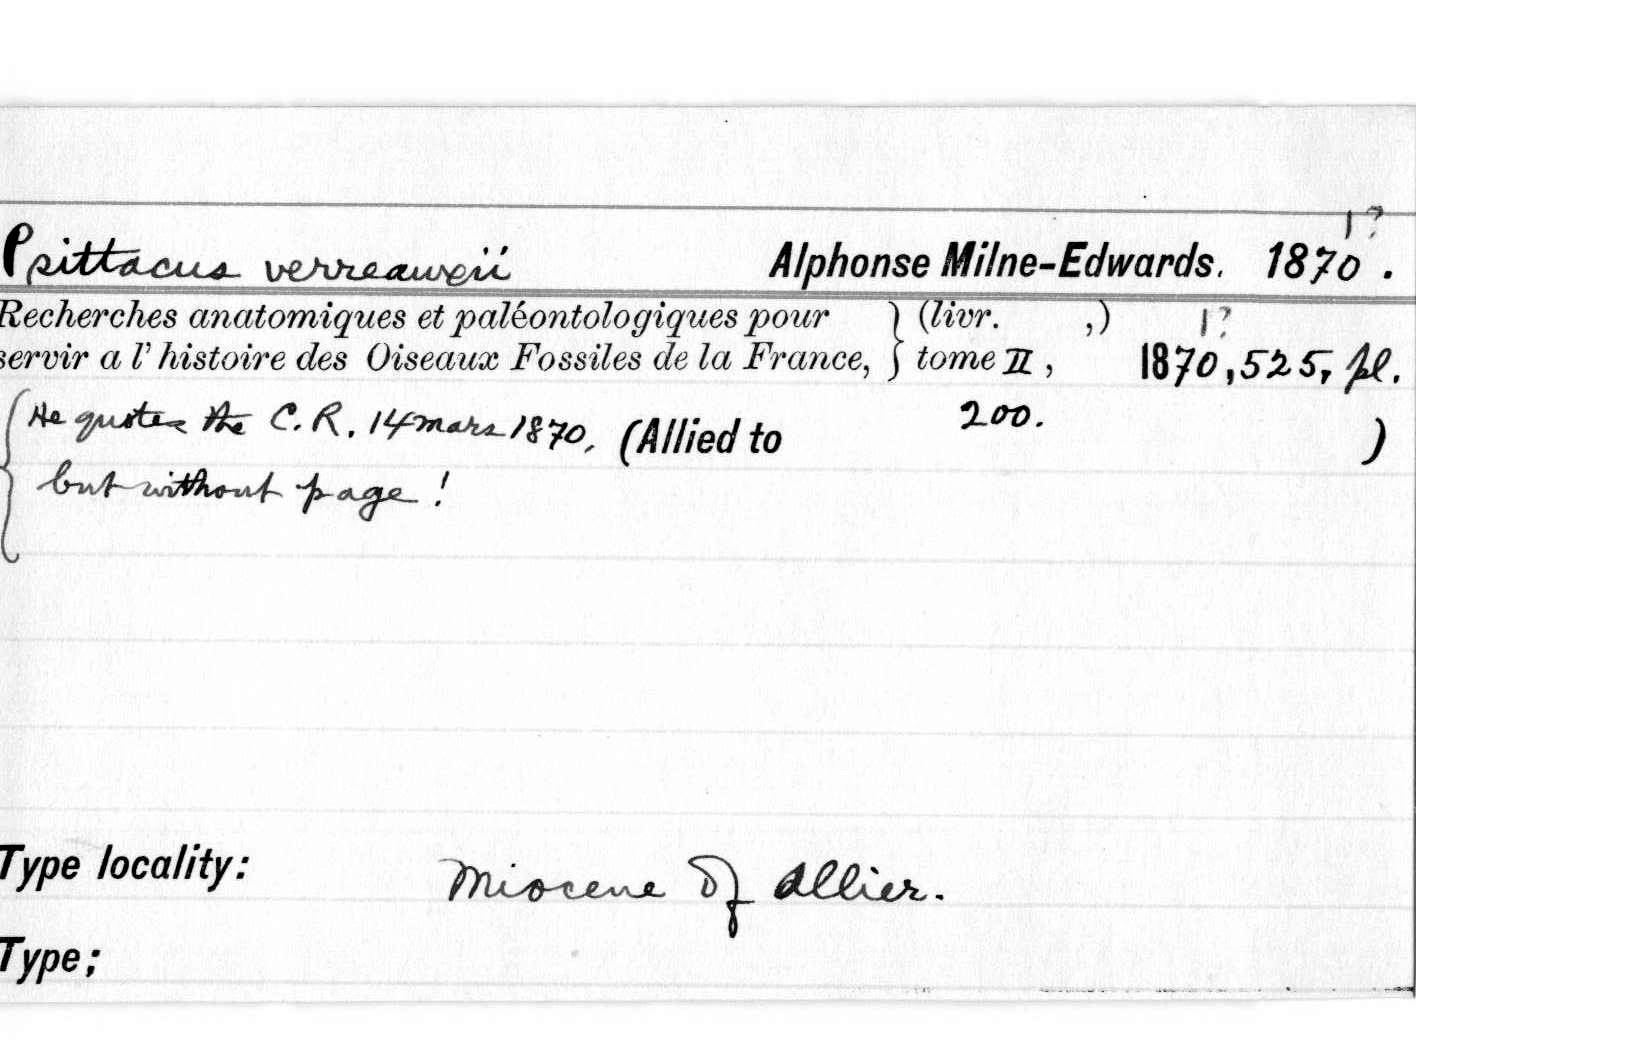 1?
Psittacus verreauxii Alphonse Milne-Edwards. 1870.
Recherches anatomiques et paléontologiques pour } (livr. ,) 1?
servir a l' histoire des Oiseaux Fossiles de la France, } tome II, 1870, 525, pl.
{ He quotes the C. R. 14 mars 1870. (Allied to 200. )
but without page!
Type locality: Miocene of Allier.
Type;